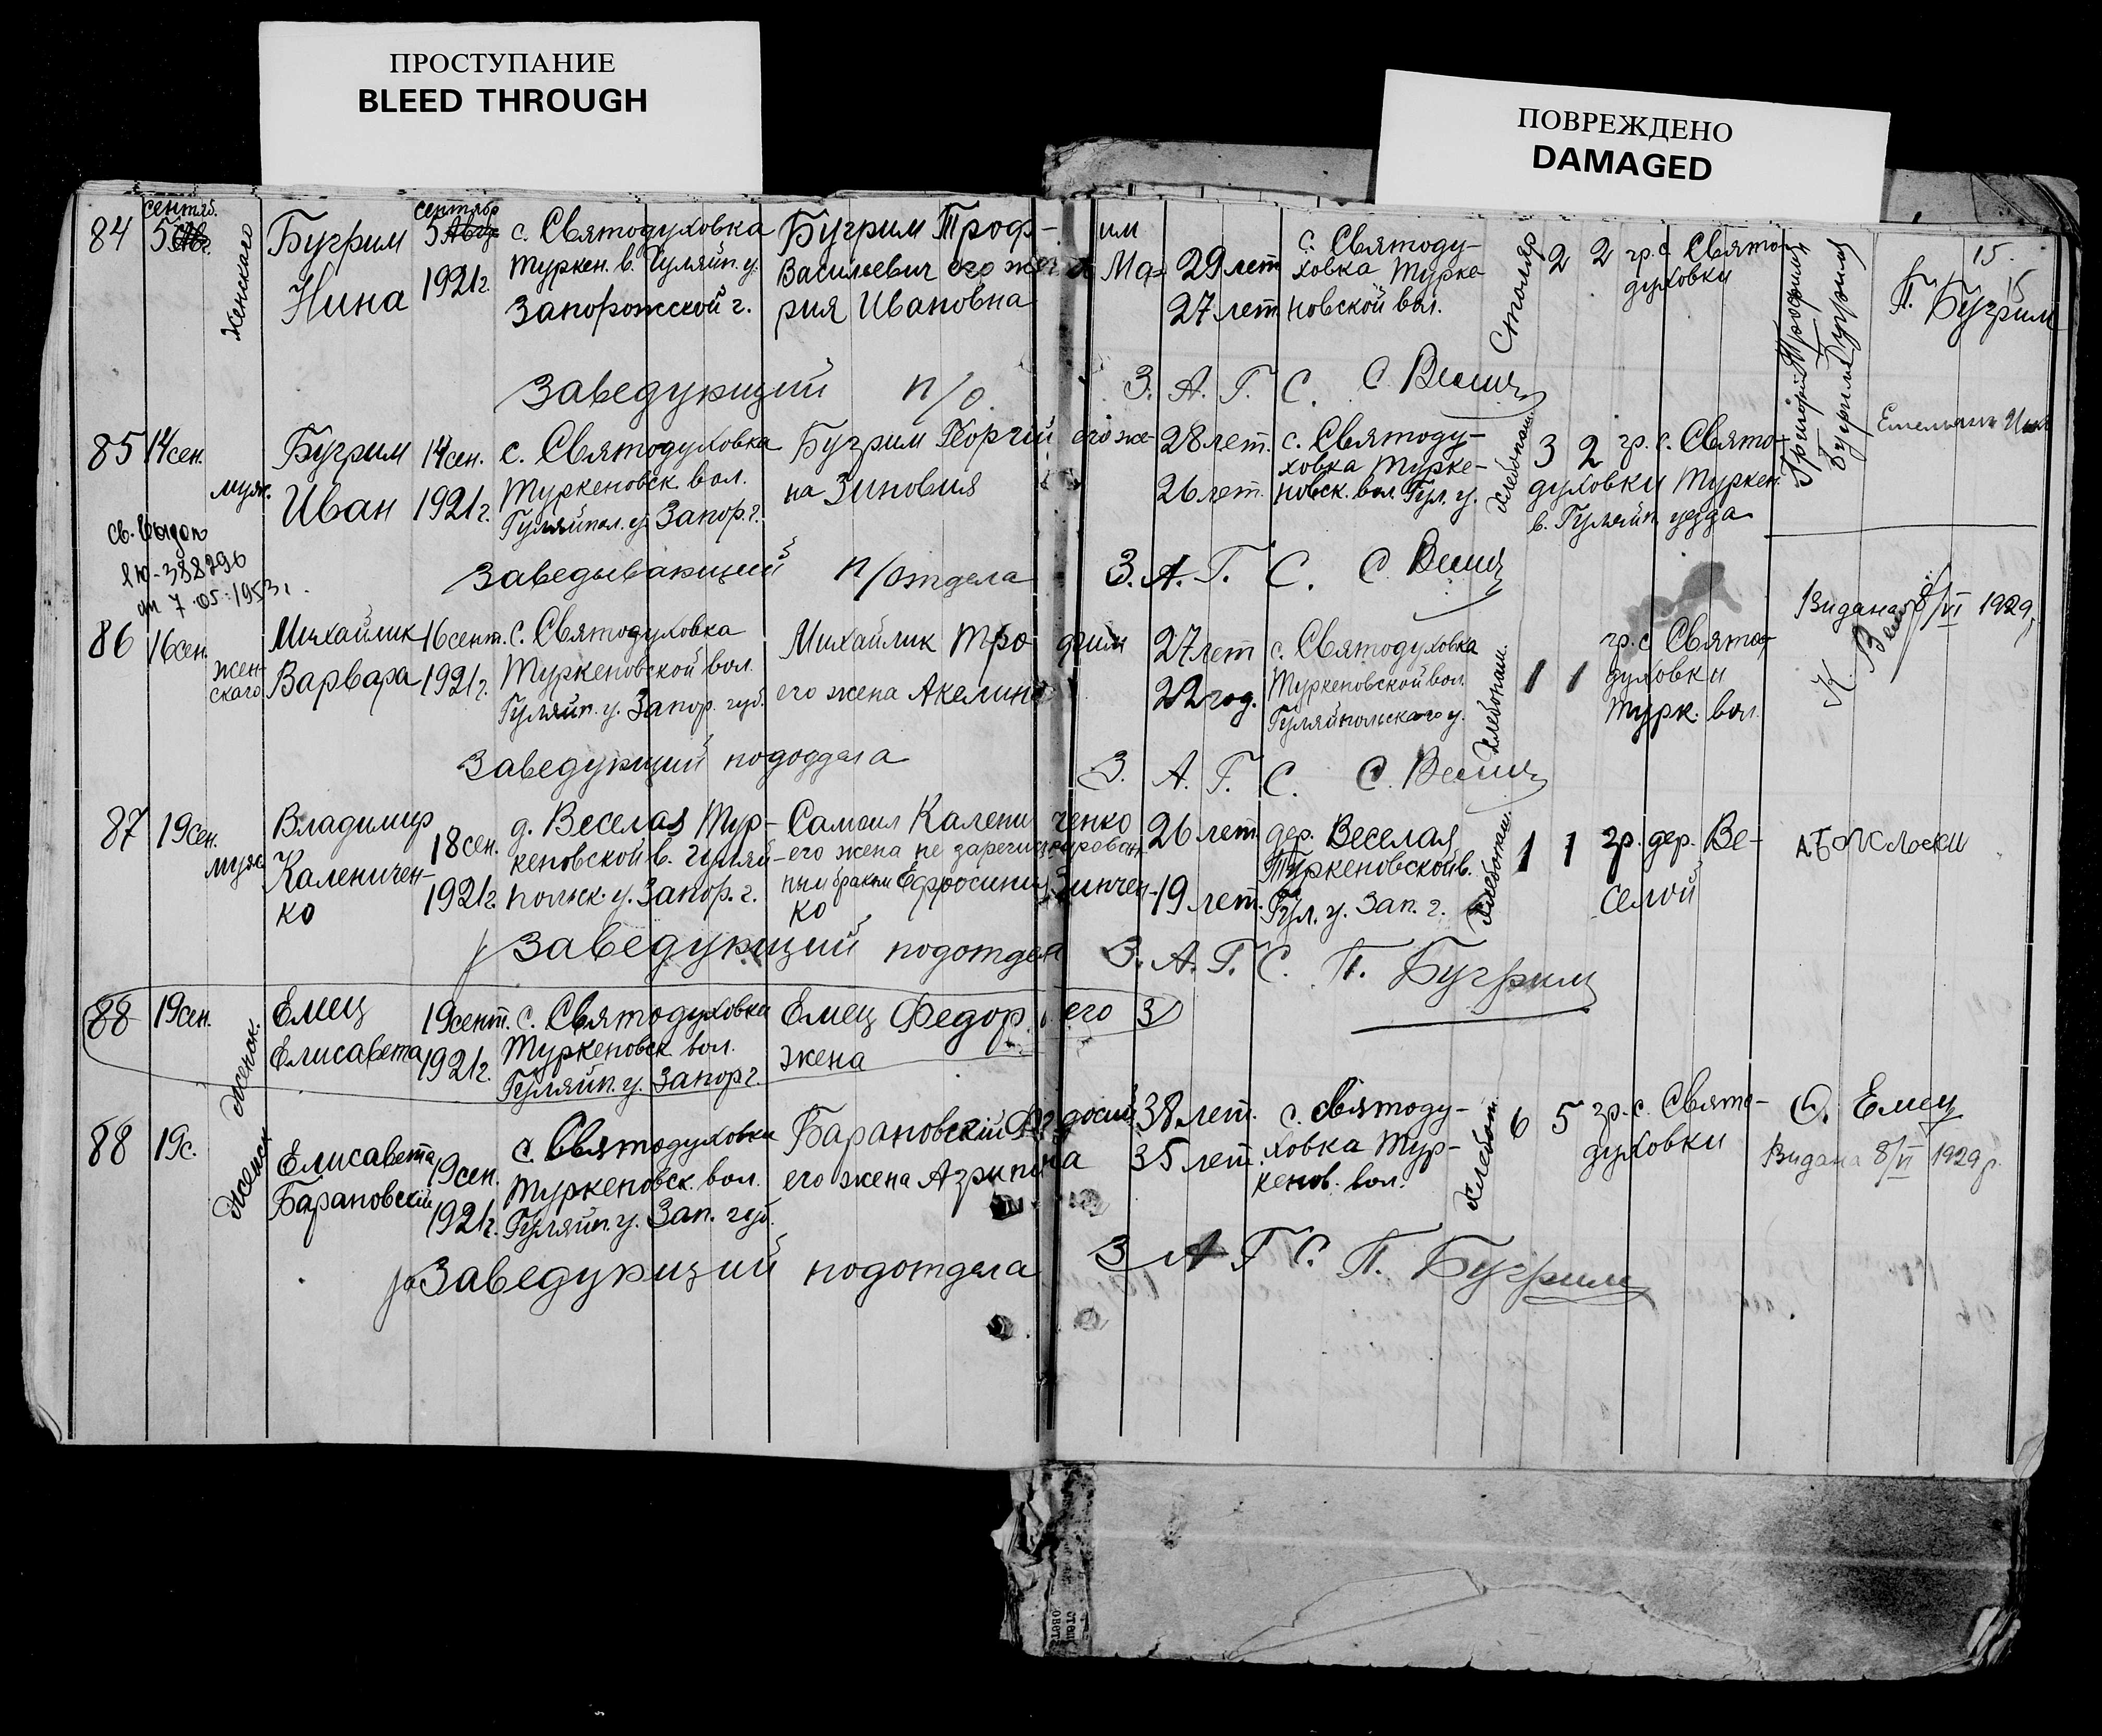 ПРОСТУПАНИЕ
BLEED THROUGH
ПОВРЕЖДЕНО
DAMAGED
15.
84 сентяб. 5 Авг. женскаго Бугрим Нина сентябр 5 Авгу. 1921г.
с. Святодуховка
Туркен. в. Гуляйп. у.
Запорожской г.
Бугрим Троф-им
Васильевич его жена Ма-
рия Ивановна
29 лет
27 лет
с. Святоду-
ховка Турке-
новской вол.
Столяр 2 2 гр. с. Свято-
духовки
Трофим
Бугрим
П. Бугрим
Заведующий п/о З. А. Г. С. С. Веши
85 14 сен. муж. Бугрим Иван 14 сен. 1921г.
с. Святодуховка
Туркеновск. вол.
Гуляйпол. у. Запор. г.
Бугрим Георгий его же-
на Зиновия
28 лет.
26 лет.
с. Святоду-
ховка Турке-
новск. вол. Гул. у.
хлебопаш. 3 2 гр. с. Свято-
духовки Туркен.
в. Гуляйп. уезда
Григорий
Бугрим
Св. выдан
388296
7.05.1953г.
Заведывающий п/отдела З. А. Г. С. С. Веши
86 16 сен. жен-
скаго
Михайлик
Варвара
16 сент.
1921г.
с. Святодуховка
Туркеновской вол.
Гуляйп. у. Запор. губ.
Михайлик Тро фим
его жена Акелина
27 лет
22 год.
с. Святодуховка
Туркеновской вол.
Гуляйпольскаго у.
хлебопаш. 1 1 гр. с. Свято-
духовки
Турк. вол.
Видана 8/VI 1929
Заведующий пододдела З. А. Г. С. С. Веши
87 19 сен. муж.
Владимир
Каленичен-
ко
18 сен.
1921г.
д. Веселая Тур-
кеновской в. Гуляй-
польск. у. Запор. г.
Самоил Калени ченко
его жена не зарегистрирован-
ным браком Ефросиния Зинчен-
ко
26 лет
19 лет.
дер. Веселая
Туркеновской в.
Гул. у. Зап. г.
хлебопаш. 1 1 гр. дер. Ве-
селой
Заведующий подотдел З. А. Г. С. П. Бугрим
88 19 сен. женск.
Емец
Елисавета
19 сент.
1921г.
с. Святодуховка
Туркеновск. вол.
Гуляйп. у. Запор г.
Емец Федор его
жена
88 19 с. женск.
Елисавета
Барановский
19 сен.
1921г.
с. Святодуховка
Туркеновск. вол.
Гуляйп. у. Зап. губ.
Барановский Федосий
его жена Агрипина
38 лет.
35 лет.
с. Святоду-
ховка Тур-
кенов. вол.
хлебоп. 6 5 гр. с. Свято-
духовки
Ф. Емец
Видана 8/VI 1929 р.
за Заведующий подотдела З А Г С. П. Бугрим